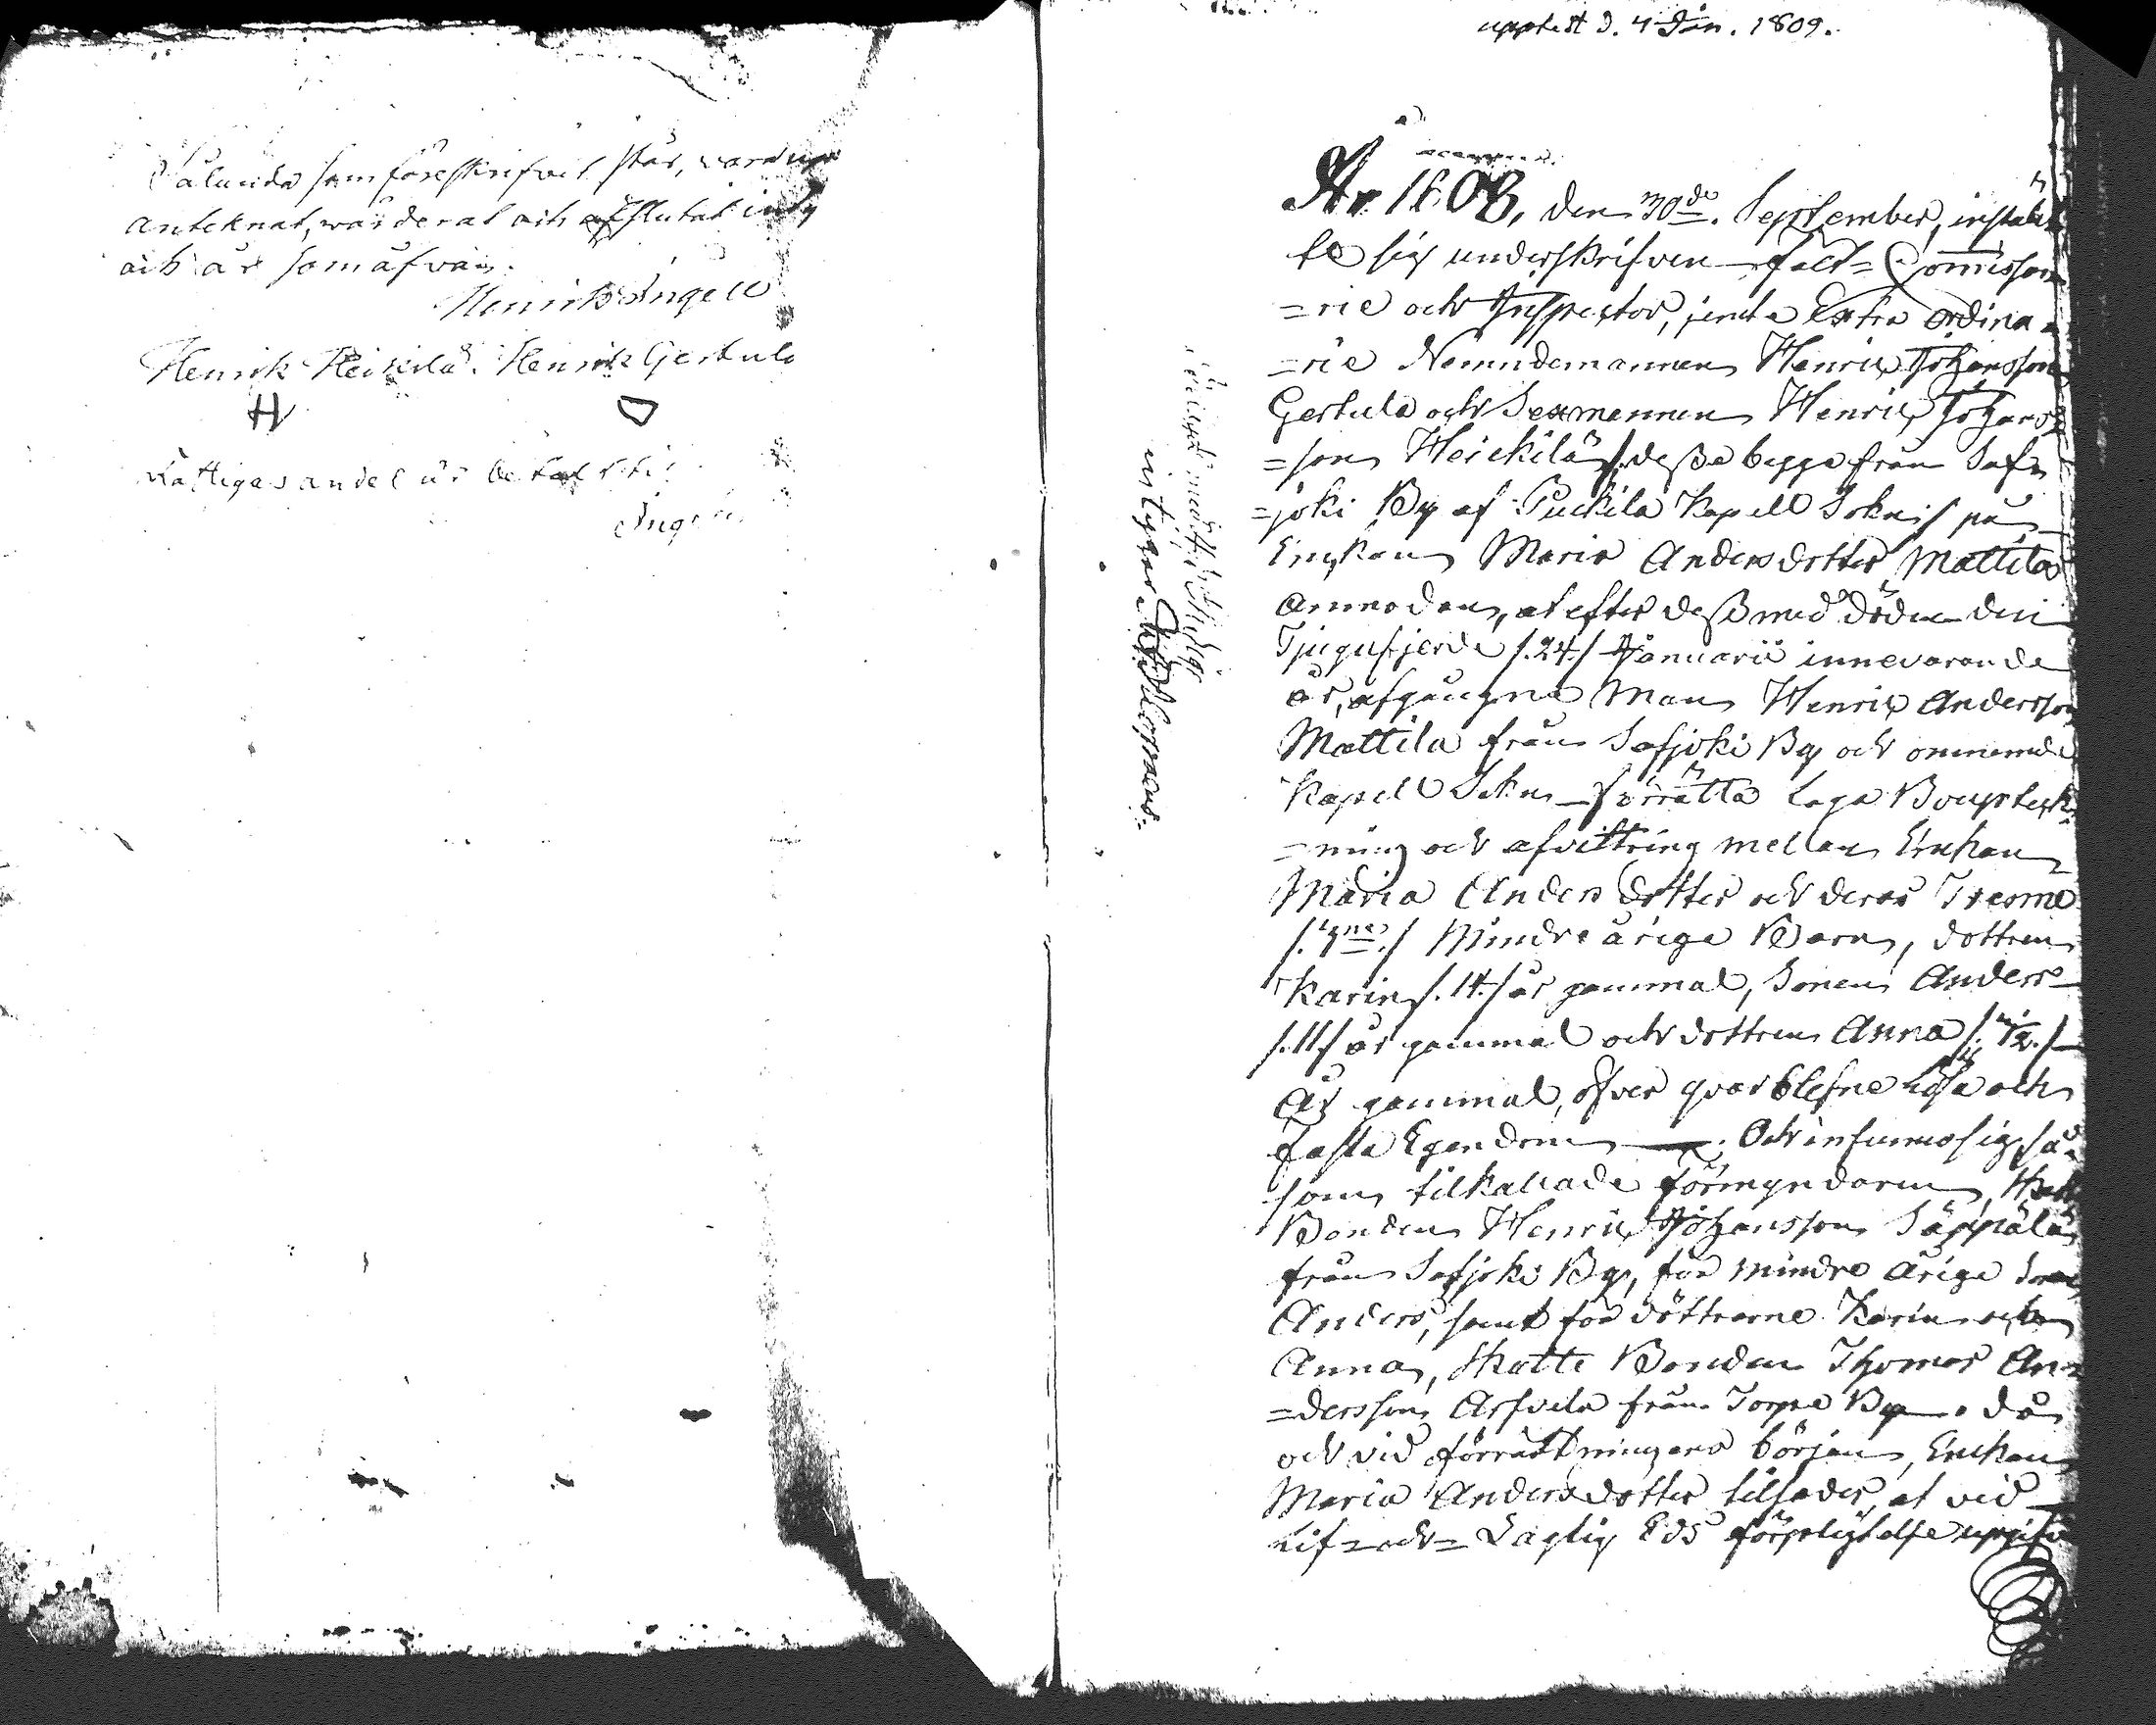 Sålunda som föreskrifvit står, vara upp
anteknat, värderat och afslutat intÿ
och är som åfvan.
Henrik Ångell
Henrik Heikilä. Henrik Gertula
H
Fattigas andel är betalt
Ånge
upplest d. 4 Jan. 1809.
År 1808, den 30de. September, instäl
te sig underskrifven Fält=Commissa
=rie och Inspector, jemte Extra ordina
=rie Nemndemannen Henric Johansson
Gertula och Sexmannen Henric Johans
=son Heickilä /: desse begge från Saf
=joki By af Puckila Kapell Sokn :/ på
Enckan Maria Andersdotter Mattilas
anmodan, at efter dess med döden den
Tjugufjerde /.24./ Januarii innevarande
år, afgångne Man Henric Andersson
Mattila från Safjoki By och omnemde
Kapell Sokn förrätta Laga Boupteck
=ning och afvittring mellan Enckan
Maria Andersdotter och deras Trenne
/.3ne./ Mindre årige Barn, dottren
Karin /.14./ år gammal, Sonen Anders
/.11./ år gammal och dottren Anna /. ½./
År gammal, öfver qvarblefne Lösa och
fasta Egendom. Och infunno sig så
som tilkallade förmyndaren, Skatte
Bonden Henric Johansson Säppälä
från Safjoki By, för mindre årige Sonen
Anders, samt för döttrarne Karin och
Anna, Skatte Bonden Thomas An
=dersson Arfvela från Torpa By. då
och vid förrättningens början, Enckan
Maria Andersdotter tilsades, at vid
Lif= och= Laglig Eds förpligtelse uppgifva